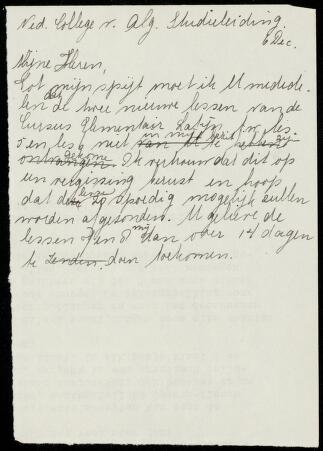 Ned. College v. Alg. Studieleiding.
6 Dec.
Mijne Heren,
Tot mijn spijt moet ik U medede-
len dat de twee nieuwe lessen van de
Cursus Elementair Latijn, les
5 en les 6 niet van U te in mijn bezit zijn
ontvangen gekomen. Ik vertrouw dat dit op
een vergissing berust en hoop
dat deze lessen zo spoedig mogelijk zullen
worden afgezonden. U gelieve de
lessen 7 en 8 mij dan over 14 dagen
te zenden, doen toekomen.